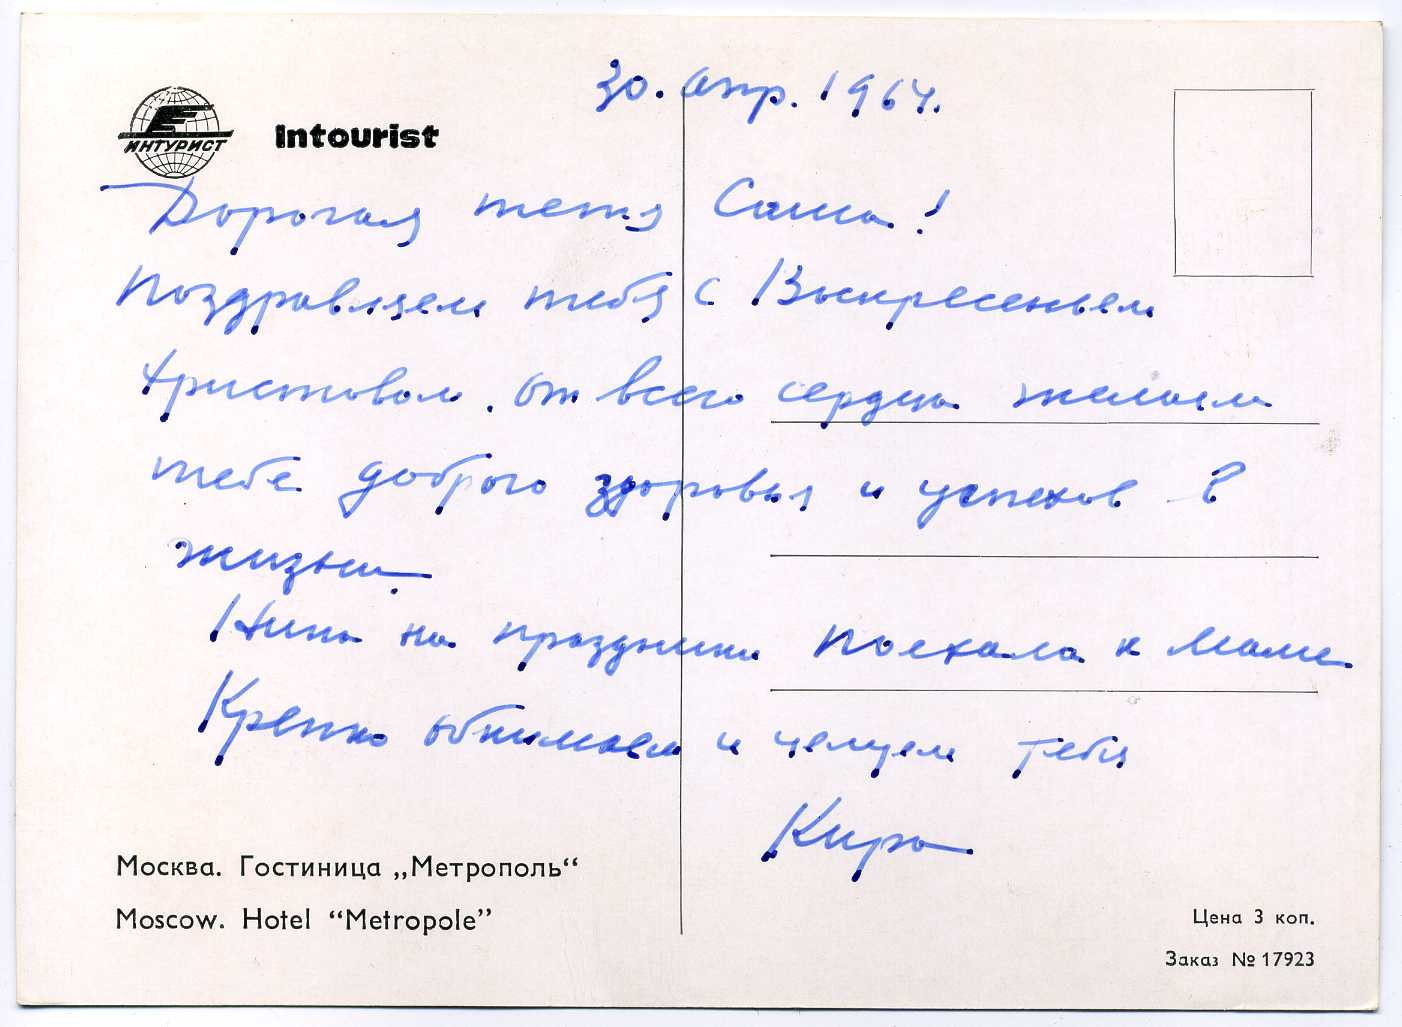 30. апр. 1964.
ИНТУРИСТ
Intourist
Дорогая тетя Саша!
Поздравляем тебя с Воскресеньем
Христовом. от всего сердца желаем
тебе доброго здоровья и успехов в
жизни.
Нина на праздники поехала к маме
Крепко обнимаем и целуем тебя
Кира
Москва. Гостиница „Метрополь“
Moscow. Hotel “Metropole”
Цена 3 коп.
Заказ № 17923